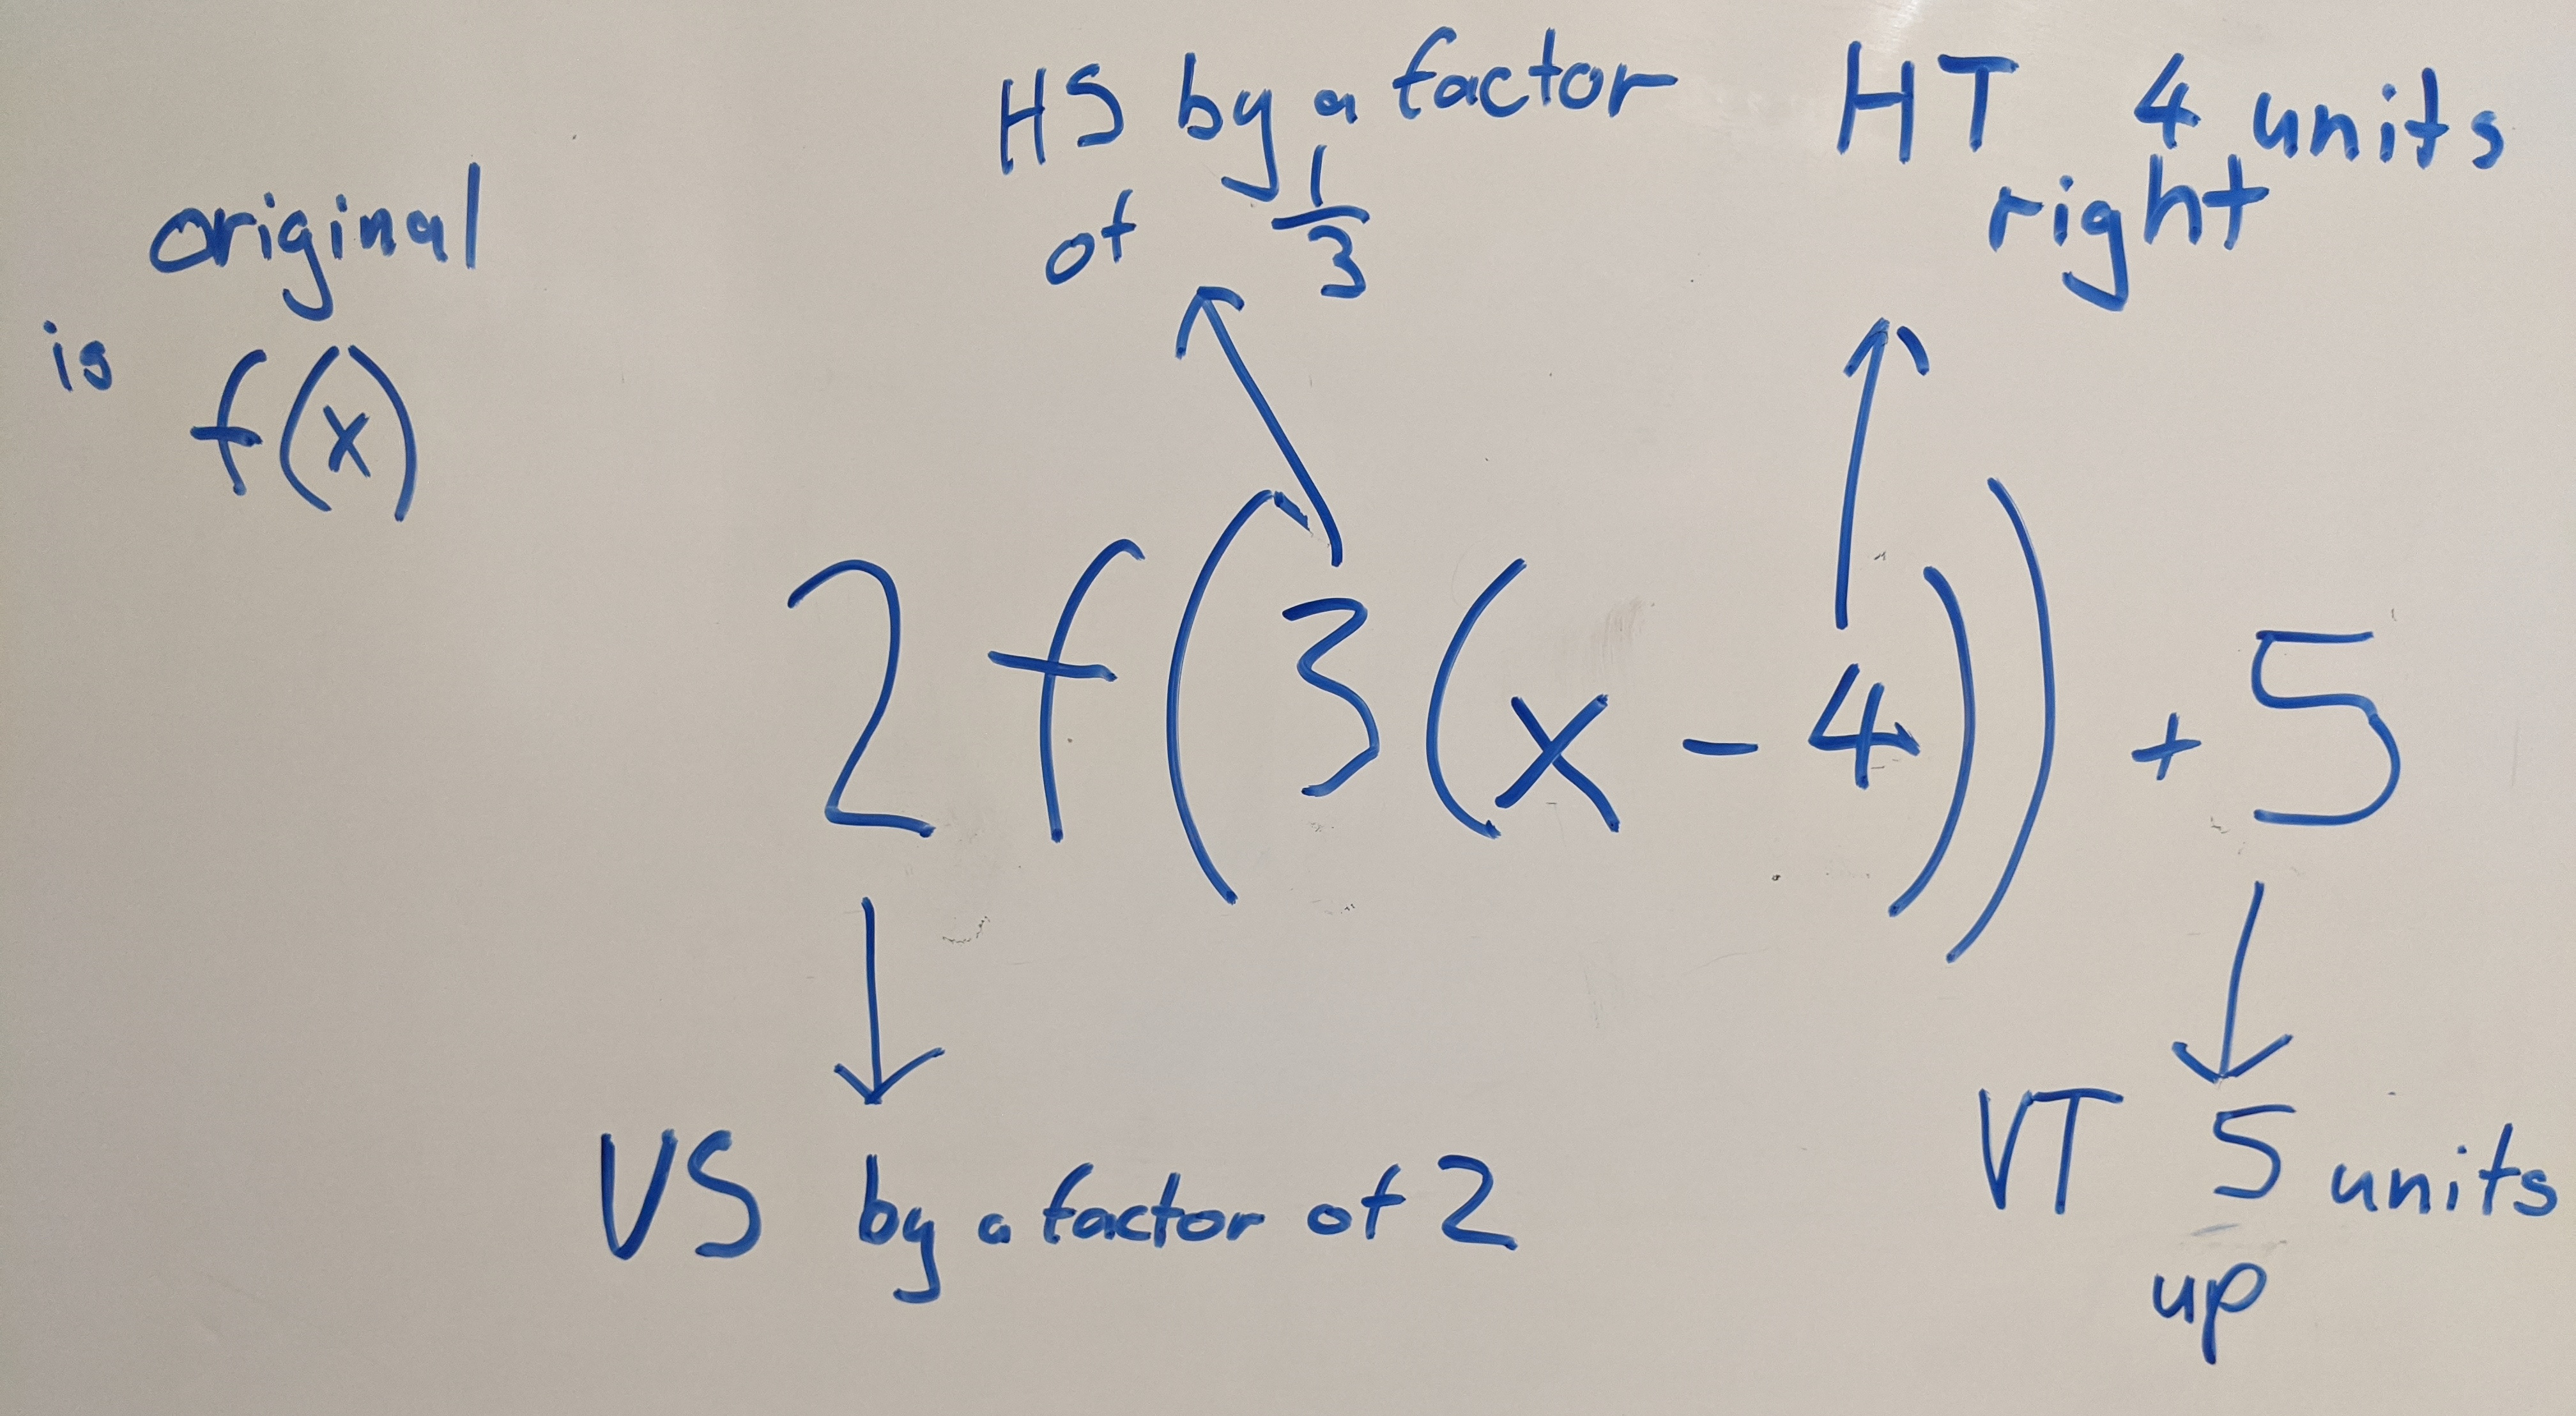 original
is f(x)
HS by a factor
of 1/3
HT 4 units
right
2f(3(x-4))+5
VS by a factor of 2
VT 5 units
up